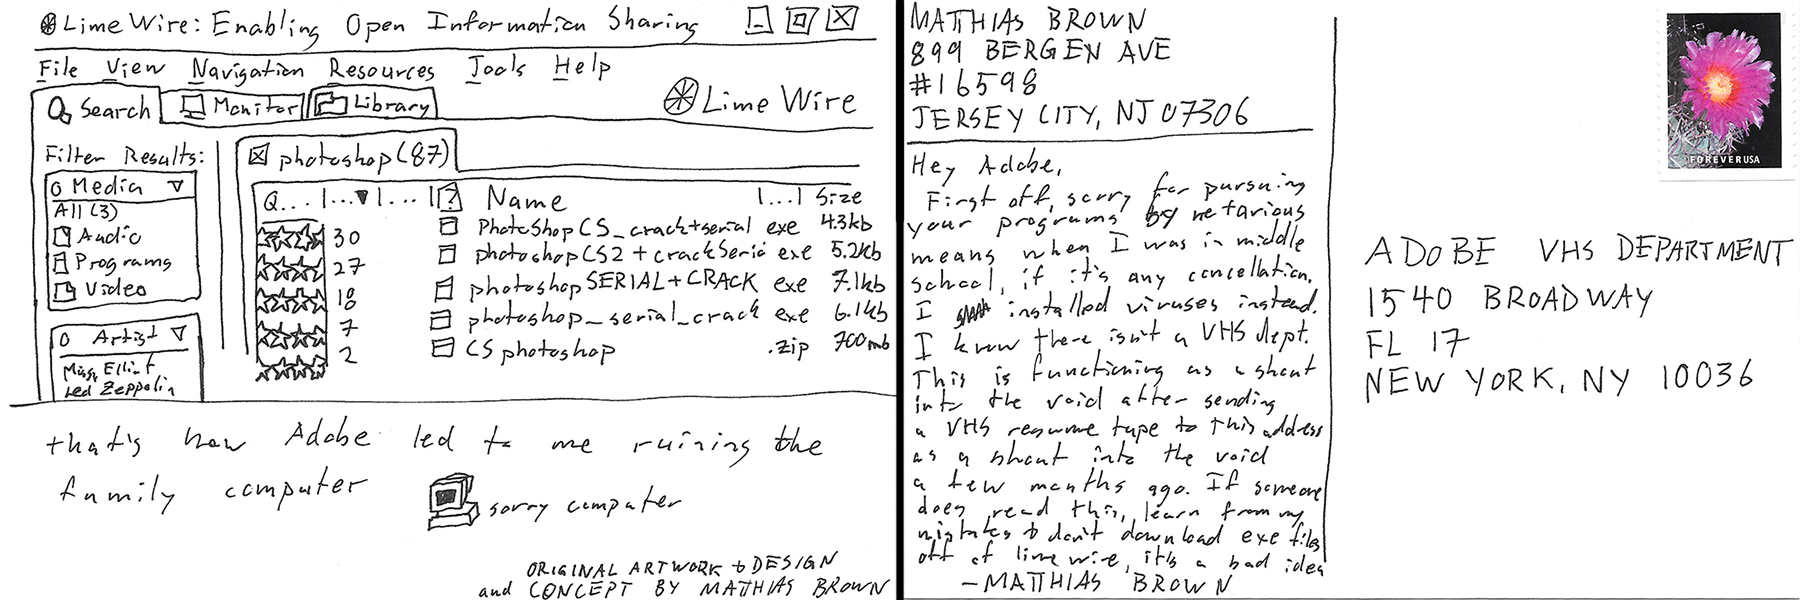 LimeWire: Enabling Open Information Sharing
File View Navigation Resources Tools Help
Search Monitor Library
LimeWire
Filter Results:
Media
All (3)
Audio
Programs
Video
Artist
Missy Elliot
Led Zeppelin
photoshop (87)
Q... |...▼|...|? Name |...| Size
30 PhotoShop CS_crack+serial exe 4.3kb
27 photoshop CS2 + crackSerial exe 5.2kb
18 photoshop SERIAL+CRACK exe 7.1kb
7 photoshop_serial_crack exe 6.1kb
2 CS photoshop .zip 700mb
that's how Adobe led to me ruining the
family computer
sorry computer
ORIGINAL ARTWORK + DESIGN
and CONCEPT BY MATTHIAS BROWN
MATTHIAS BROWN
899 BERGEN AVE
#16598
JERSEY CITY, NJ 07306
Hey Adobe,
First off, sorry for pursuing
your programs by nefarious
means when I was in middle
school, if it's any concellation,
I installed viruses instead.
I know there isn't a VHS dept.
This is functioning as a shout
into the void after sending
a VHS resume tape to this address
as a shout into the void
a few months ago. If someone
does read this, learn from my
mistakes + don't download exe files
off of limewire, it's a bad idea
-MATTHIAS BROWN
FOREVER USA
ADOBE VHS DEPARTMENT
1540 BROADWAY
FL 17
NEW YORK, NY 10036